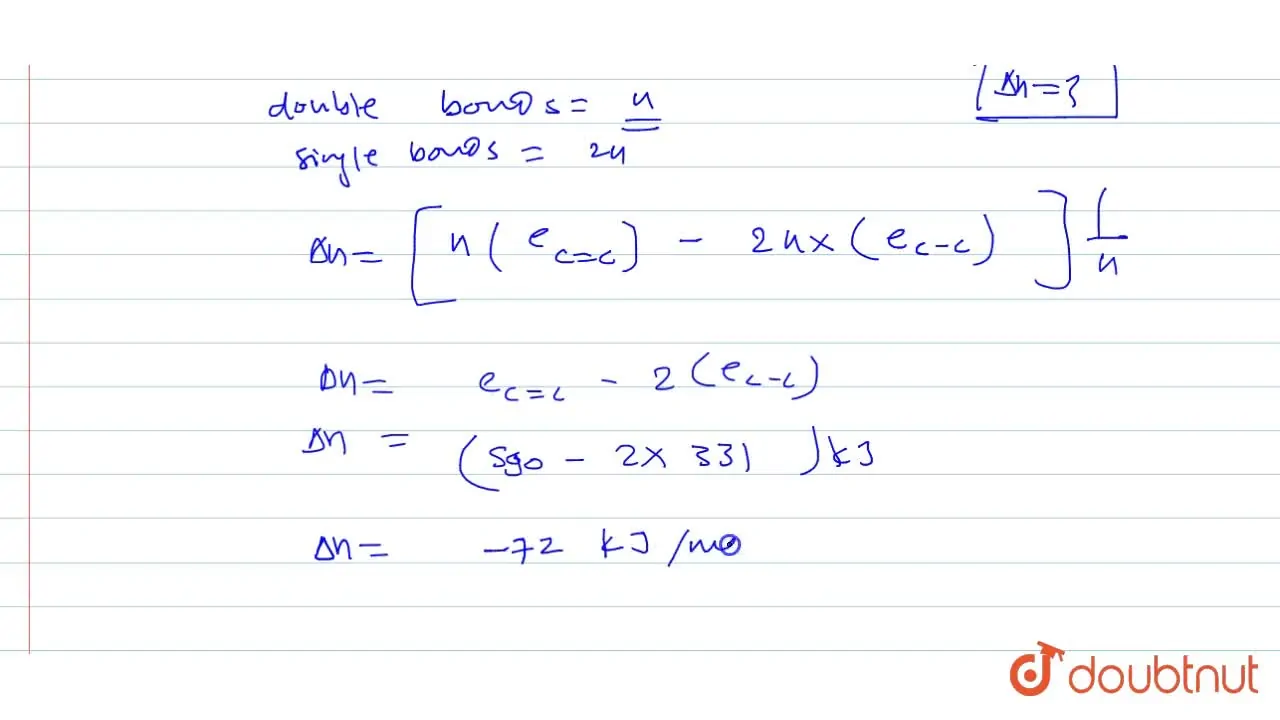 ΔH = ?
double bonds = n
single bonds = 2n
ΔH = [ n ( e C=C ) - 2n × ( e C-C ) ] 1/n
ΔH = e C=C - 2 ( e C-C )
ΔH = ( 590 - 2 × 331 ) kJ
ΔH = -72 kJ /mo
doubtnut